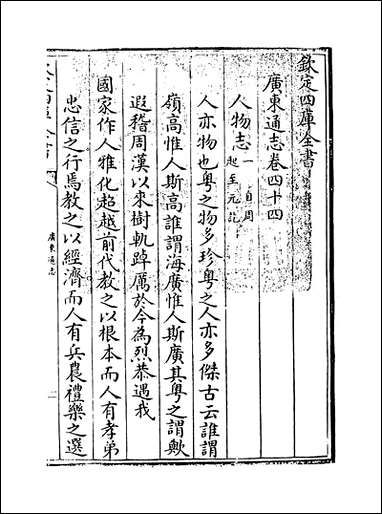 欽定四庫全書
廣東通志卷四十四
人物志一 自周起至元訖
人亦物也粤之物多珍粤之人亦多傑古云誰謂
嶺高惟人斯高誰謂海廣惟人斯廣其粤之謂歟
遐稽周漢以來樹軌踔厲於今為烈恭遇我
國家作人雅化超越前代教之以根本而人有孝弟
忠信之行焉教之以經濟而人有兵農禮樂之選
廣東通志